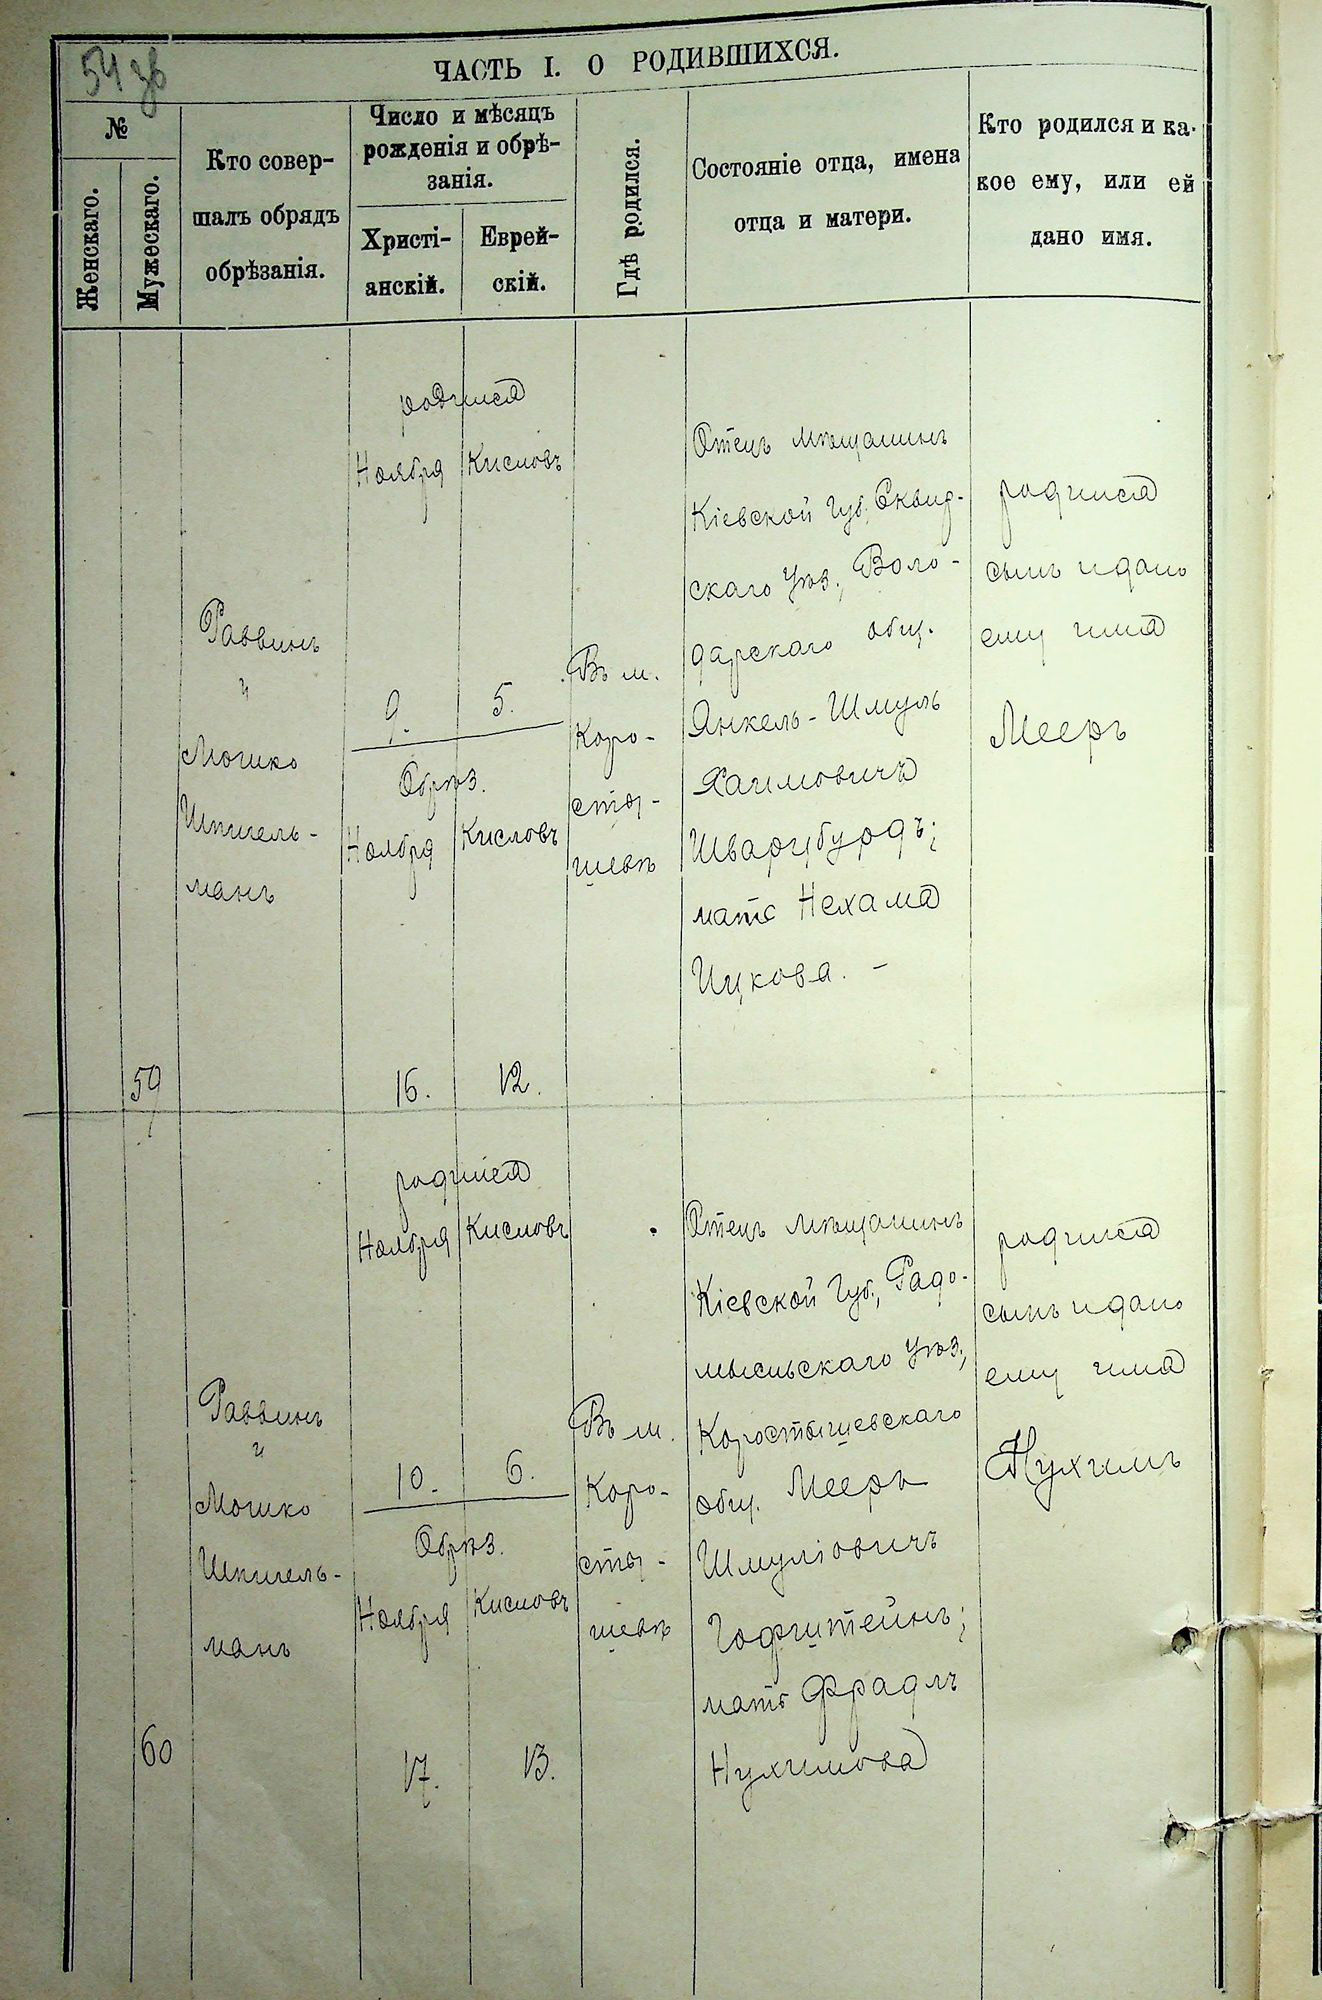 54 зв
ЧАСТЬ I. О РОДИВШИХСЯ.
№
Женскаго.
Мужескаго.
Кто совер-
шалъ обрядъ
обрѣзанія.
Число и мѣсяцъ
рожденія и обрѣ-
занія.
Христі-
анскій.
Еврей-
скій.
Гдѣ родился.
Состояніе отца, имена
отца и матери.
Кто родился и ка-
кое ему, или ей
дано имя.
59
Раввинъ
и
Мошко
Шпигель-
манъ
родился
Ноября Кисловъ
9. 5.
Обрѣз.
Ноября Кисловъ
16. 12.
Въ м.
Коро-
сты-
шевѣ
Отецъ мѣщанинъ
Кіевской Губ. Сквир-
скаго Уѣз., Воло-
дарскаго общ.
Янкель-Шмуль
Хаимовичъ
Шварцбурдъ;
мать Нехама
Ицкова. -
родился
сынъ и дано
ему имя
Мееръ
60
Раввинъ
и
Мошко
Шпигель-
манъ
родился
Ноября Кисловъ
10. 6.
Обрѣз.
Ноября Кисловъ
17. 13.
Въ м.
Коро-
сты-
шевѣ
Отецъ мѣщанинъ
Кіевской Губ., Радо-
мысльскаго Уѣз.,
Коростышевскаго
общ. Мееръ
Шмуліовичъ
Гофштейнъ;
мать Фрадль
Нухимова
родился
сынъ и дано
ему имя
Нухимъ